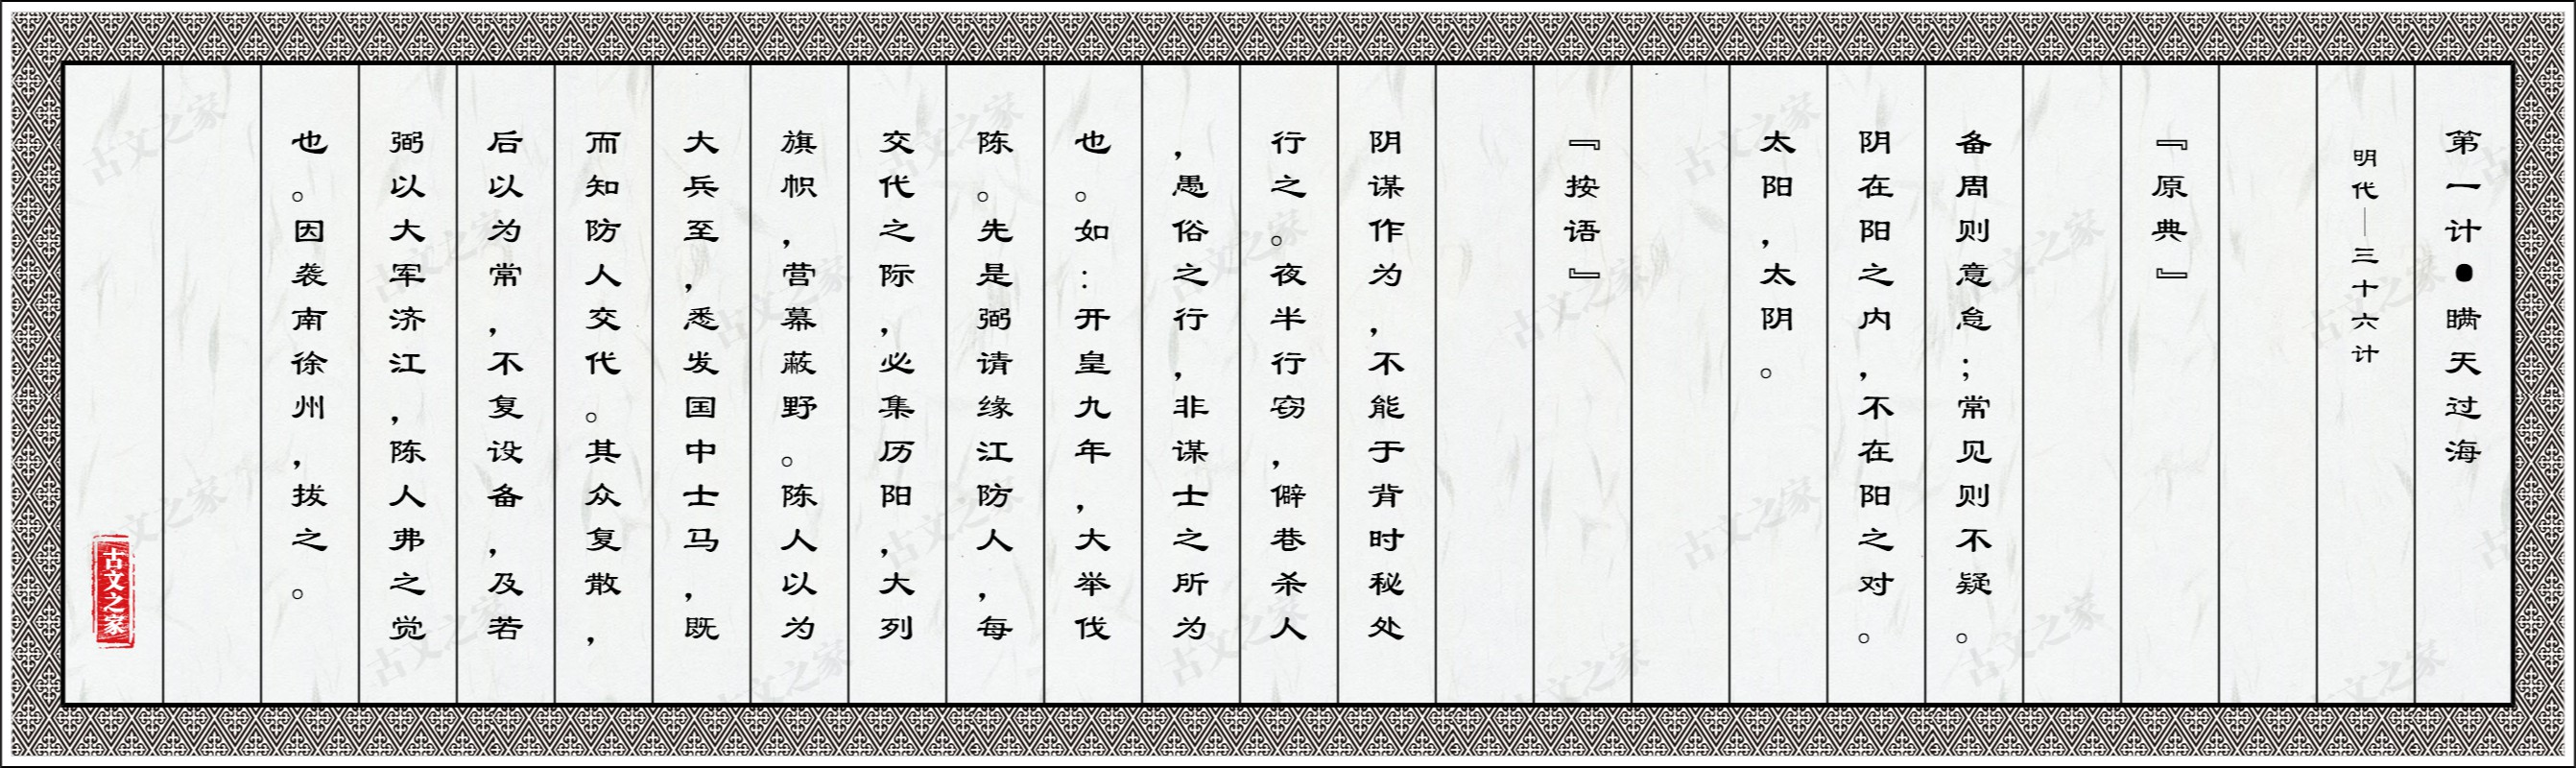 第一计●瞒天过海
明代—三十六计
『原典』
备周则意怠；常见则不疑。
阴在阳之内，不在阳之对。
太阳，太阴。
『按语』
阴谋作为，不能于背时秘处
行之。夜半行窃，僻巷杀人
，愚俗之行，非谋士之所为
也。如：开皇九年，大举伐
陈。先是弼请缘江防人，每
交代之际，必集历阳，大列
旗帜，营幕蔽野。陈人以为
大兵至，悉发国中士马，既
而知防人交代。其众复散，
后以为常，不复设备，及若
弼以大军济江，陈人弗之觉
也。因袭南徐州，拔之。
古文之家